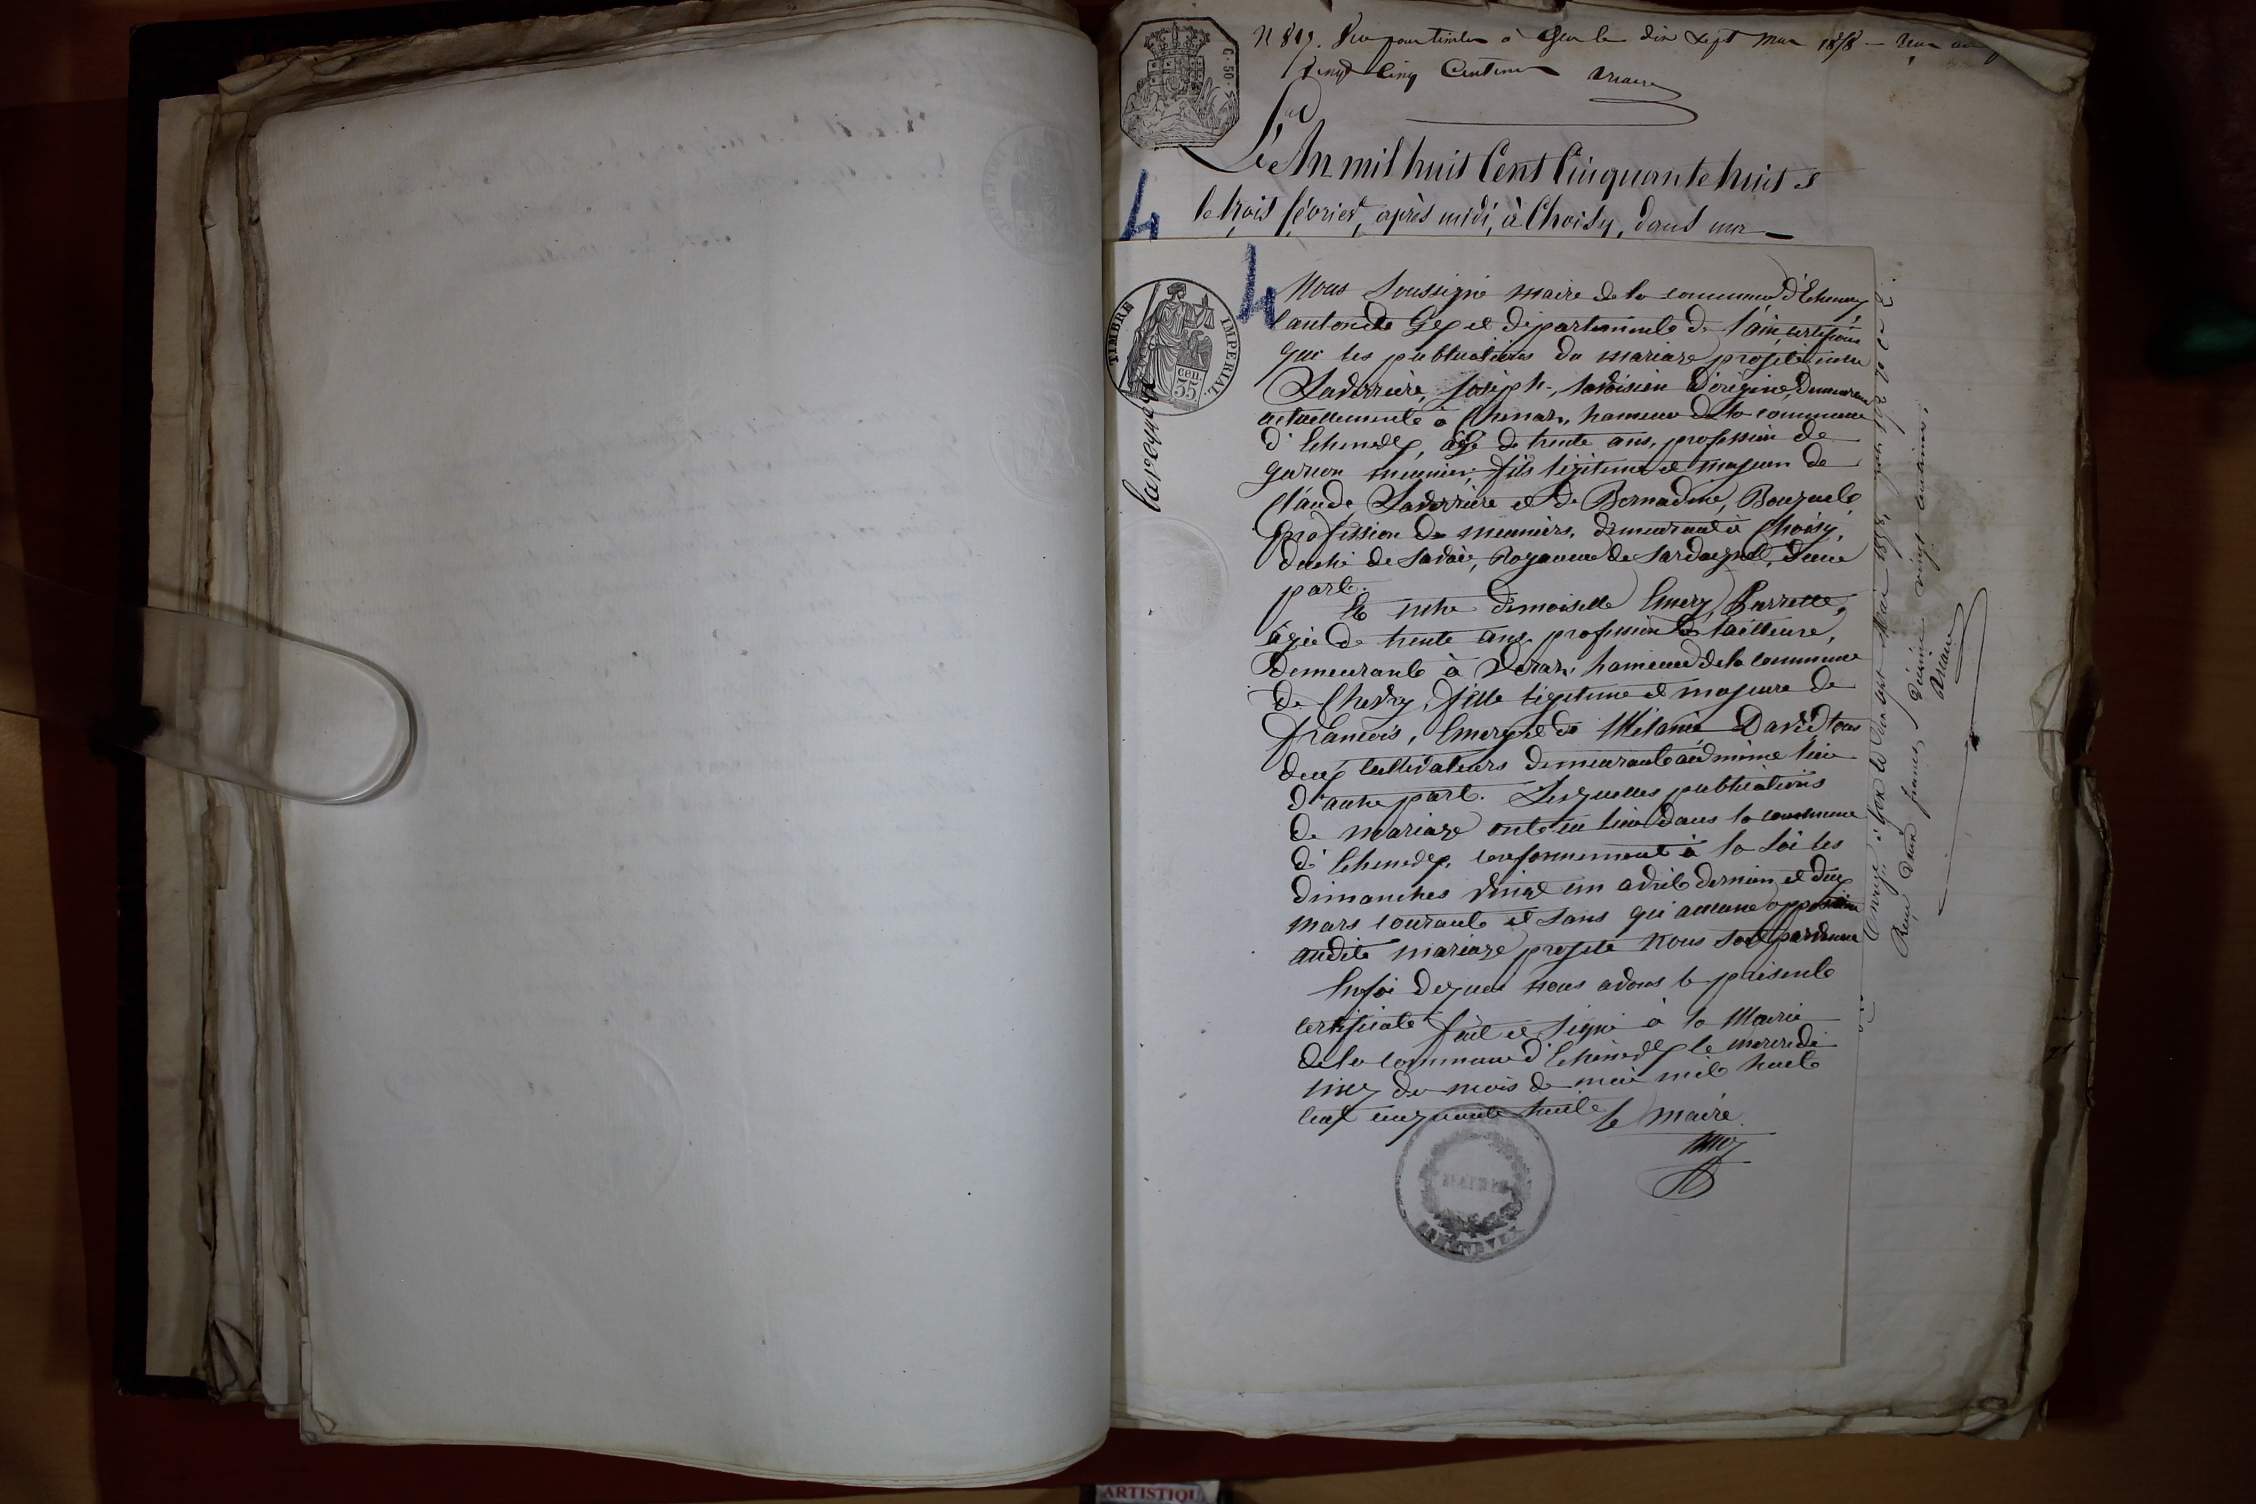 N 819. Vu pour timbre à Gex le dix sept mai 1858 – Reçu
vingt cinq Centimes
C. 50.
L'An mil huit Cent Cinquante huit &
le trois février, après midi, à Choisy, dans mon
4
4
TIMBRE IMPERIAL.
cen.
35
Nous soussigné maire de la commune d'Echenevex,
Canton de Gex et département de l'ain, certifions
que les publications du mariage projeté entre
Laverrière, Joseph, savoisien d'origine, demeurant
actuellement à Chenaz, hameau de la commune
d'Echenevex, âgé de trente ans, profession de
garçon meunier, fils légitime et majeur de
Claude Laverrière et de Bernadine, Bouquet,
profession de meuniers, demeurant à Choisy,
duché de Savoie, Royaume de Sardaigne, d'une
part.
Et entre demoiselle Emery, Perrette,
âgée de trente ans, profession de tailleuse,
demeurant à Veraz, hameau de la commune
de Chevry, fille légitime et majeure de
François, Emery et de Mélanie David tous
deux cultivateurs demeurant au même lieu
d'autre part. Lesquelles publications
de mariage ont eu lieu dans la commune
d'Echenevex, conformément à la loi les
dimanches vingt un avril dernier et deux
mars courant et sans qu'aucune opposition
audit mariage projeté nous soit parvenue
En foi de quoi nous avons le présent
certificat fait et signé à la Mairie
de la commune d'Echenevex le mercredi
cinq du mois de mai mil huit
cent cinquante huit
le maire.
MAIRIE
ECHENEVEX
Enregé à Gex le dix sept Mai 1858,
Reçu deux francs, décime vingt centimes.
ARTISTIQU